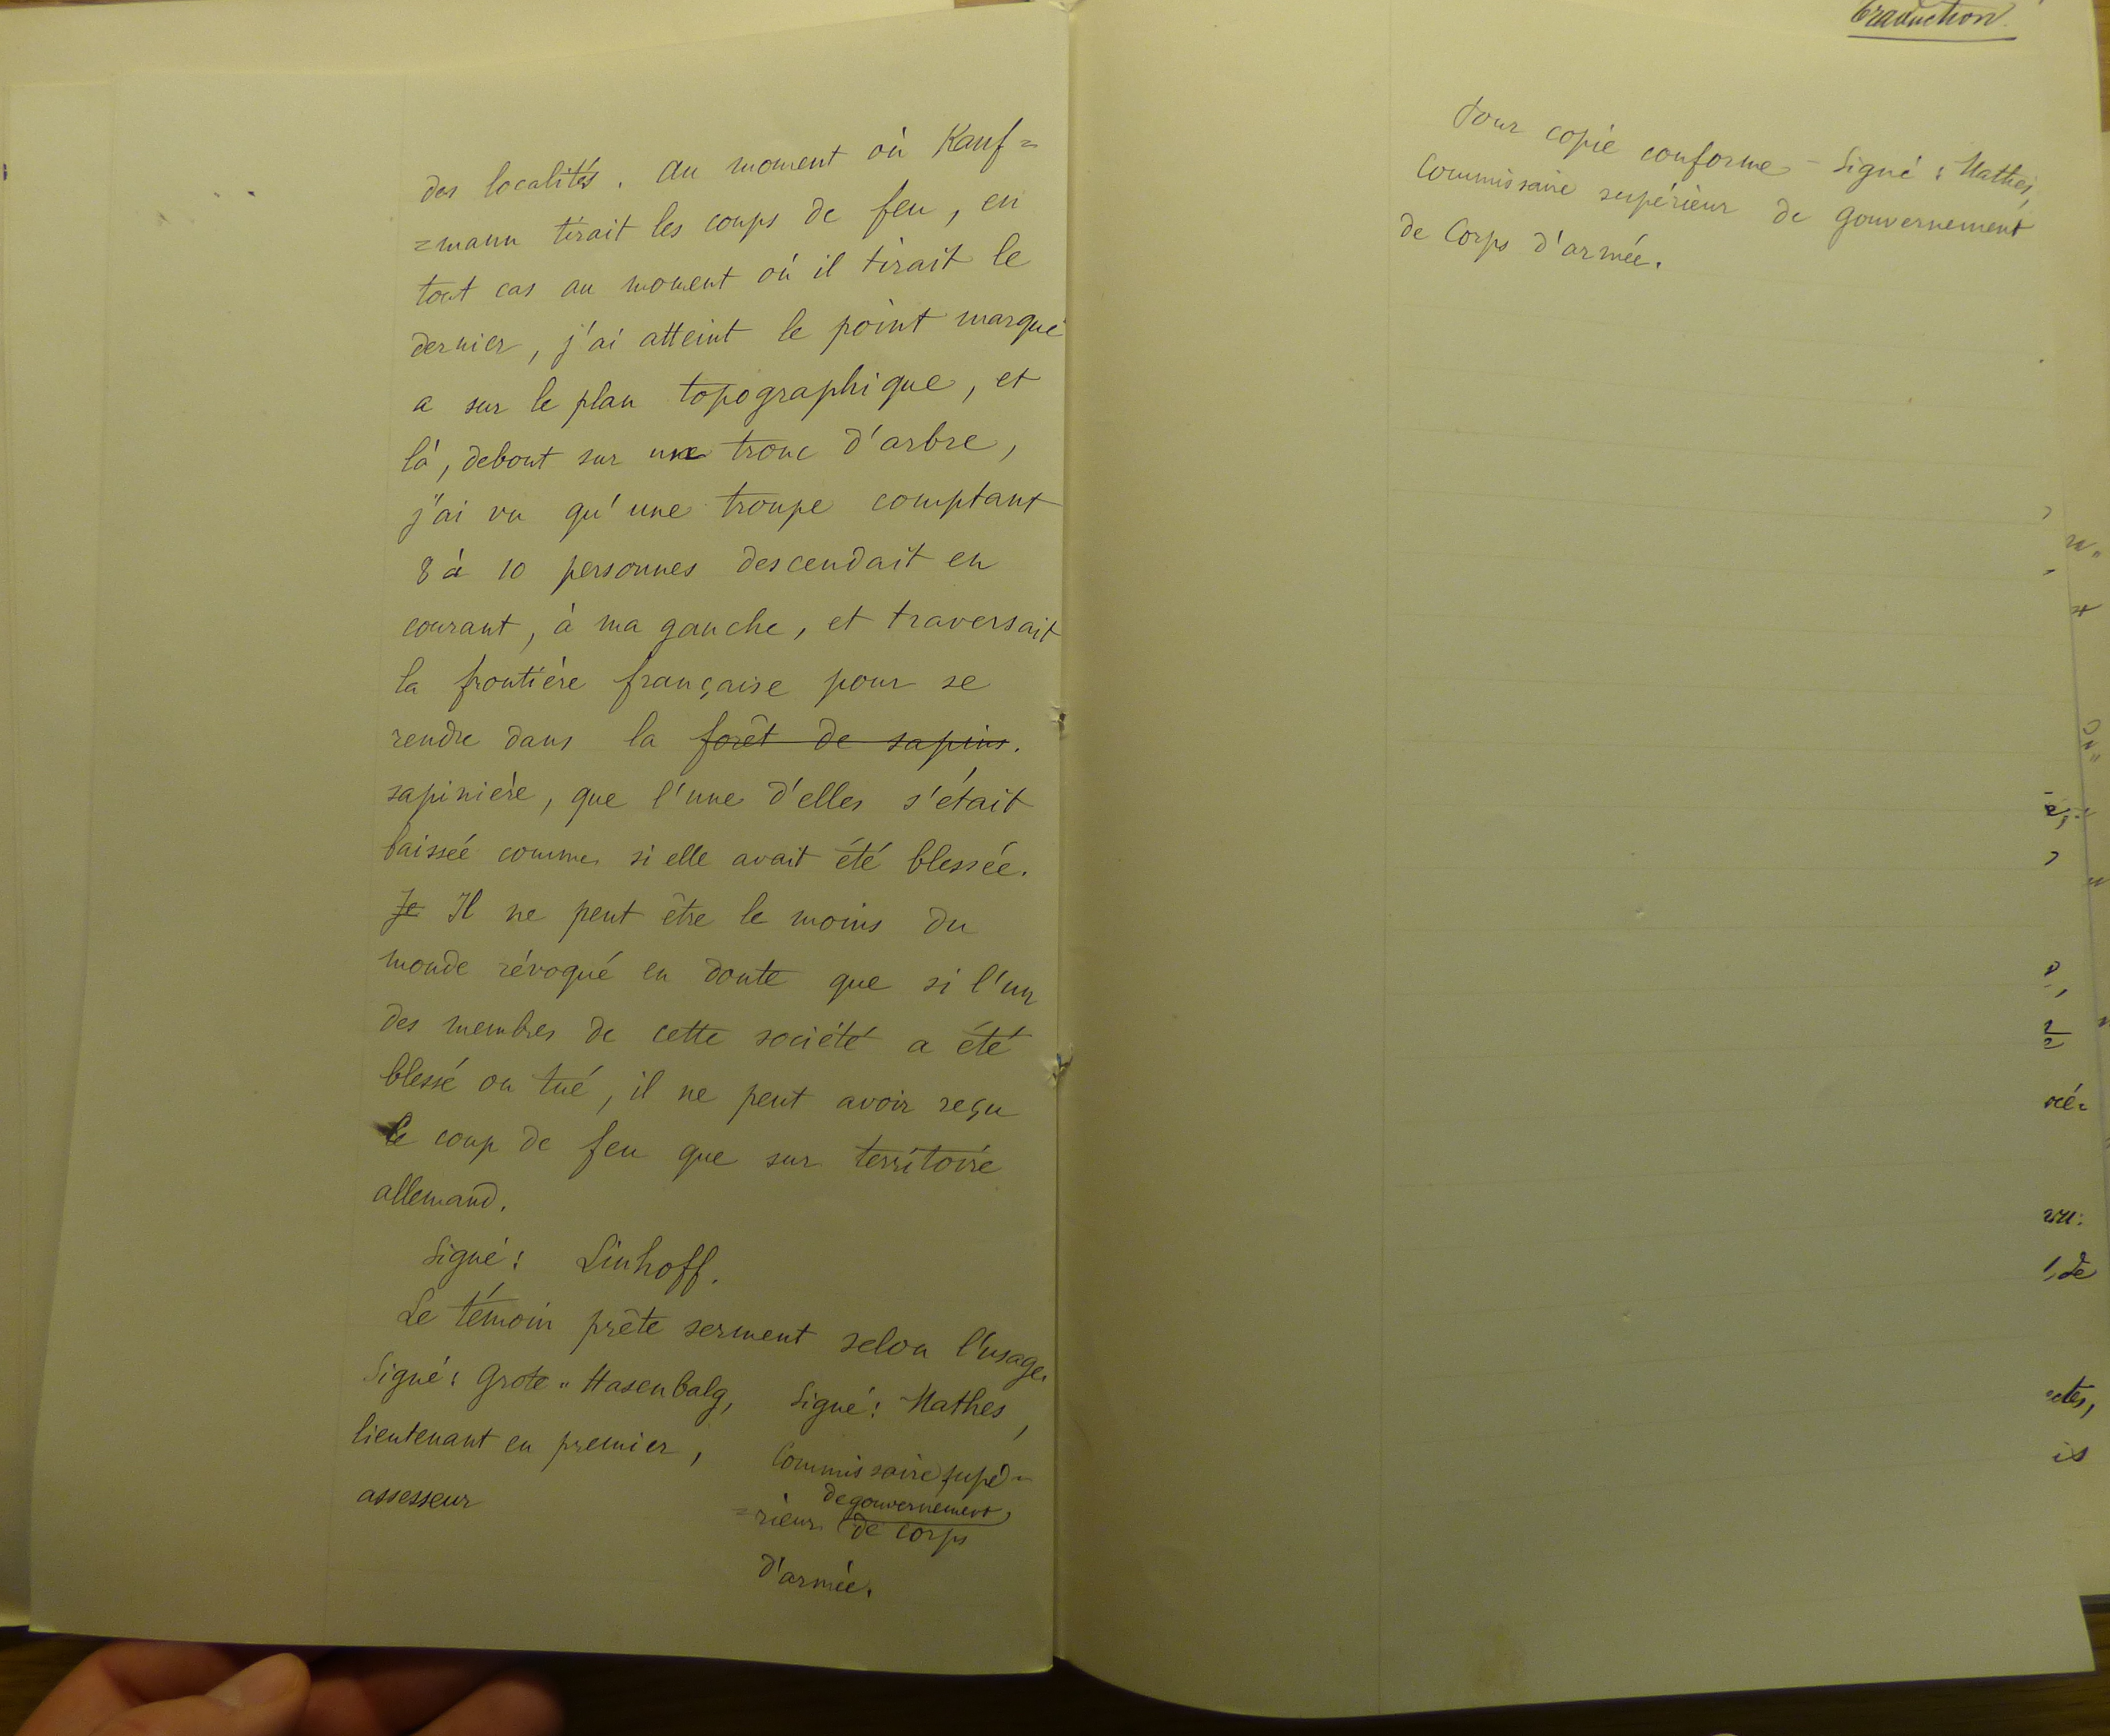 des localités. Au moment où Kauf=
=mann tirait les coups de feu, en
tout cas au moment où il tirait le
dernier, j'ai atteint le point marqué
a sur le plan topographique, et
là, debout sur un tronc d'arbre,
j'ai vu qu'une troupe comptant
8 à 10 personnes descendait en
courant, à ma gauche, et traversait
la frontière française pour se
rendre dans la forêt de sapins.
sapinière, que l'une d'elles s'était
baissée comme si elle avait été blessée.
Je Il ne peut être le moins du
monde révoqué en doute que si l'un
des membres de cette société a été
blessé ou tué, il ne peut avoir reçu
le coup de feu que sur territoire
allemand.
Signé: Linhoff.
Le témoin prête serment selon l'usage.
Signé: Grote=Hasenbalg,
lieutenant en premier,
assesseur
Signé: Mathes,
Commissaire supé=
de gouvernement
=rieur de corps
d'armée.
Traduction.
Pour copie conforme – Signé: Mathes,
Commissaire supérieur de gouvernement
de Corps d'armée.